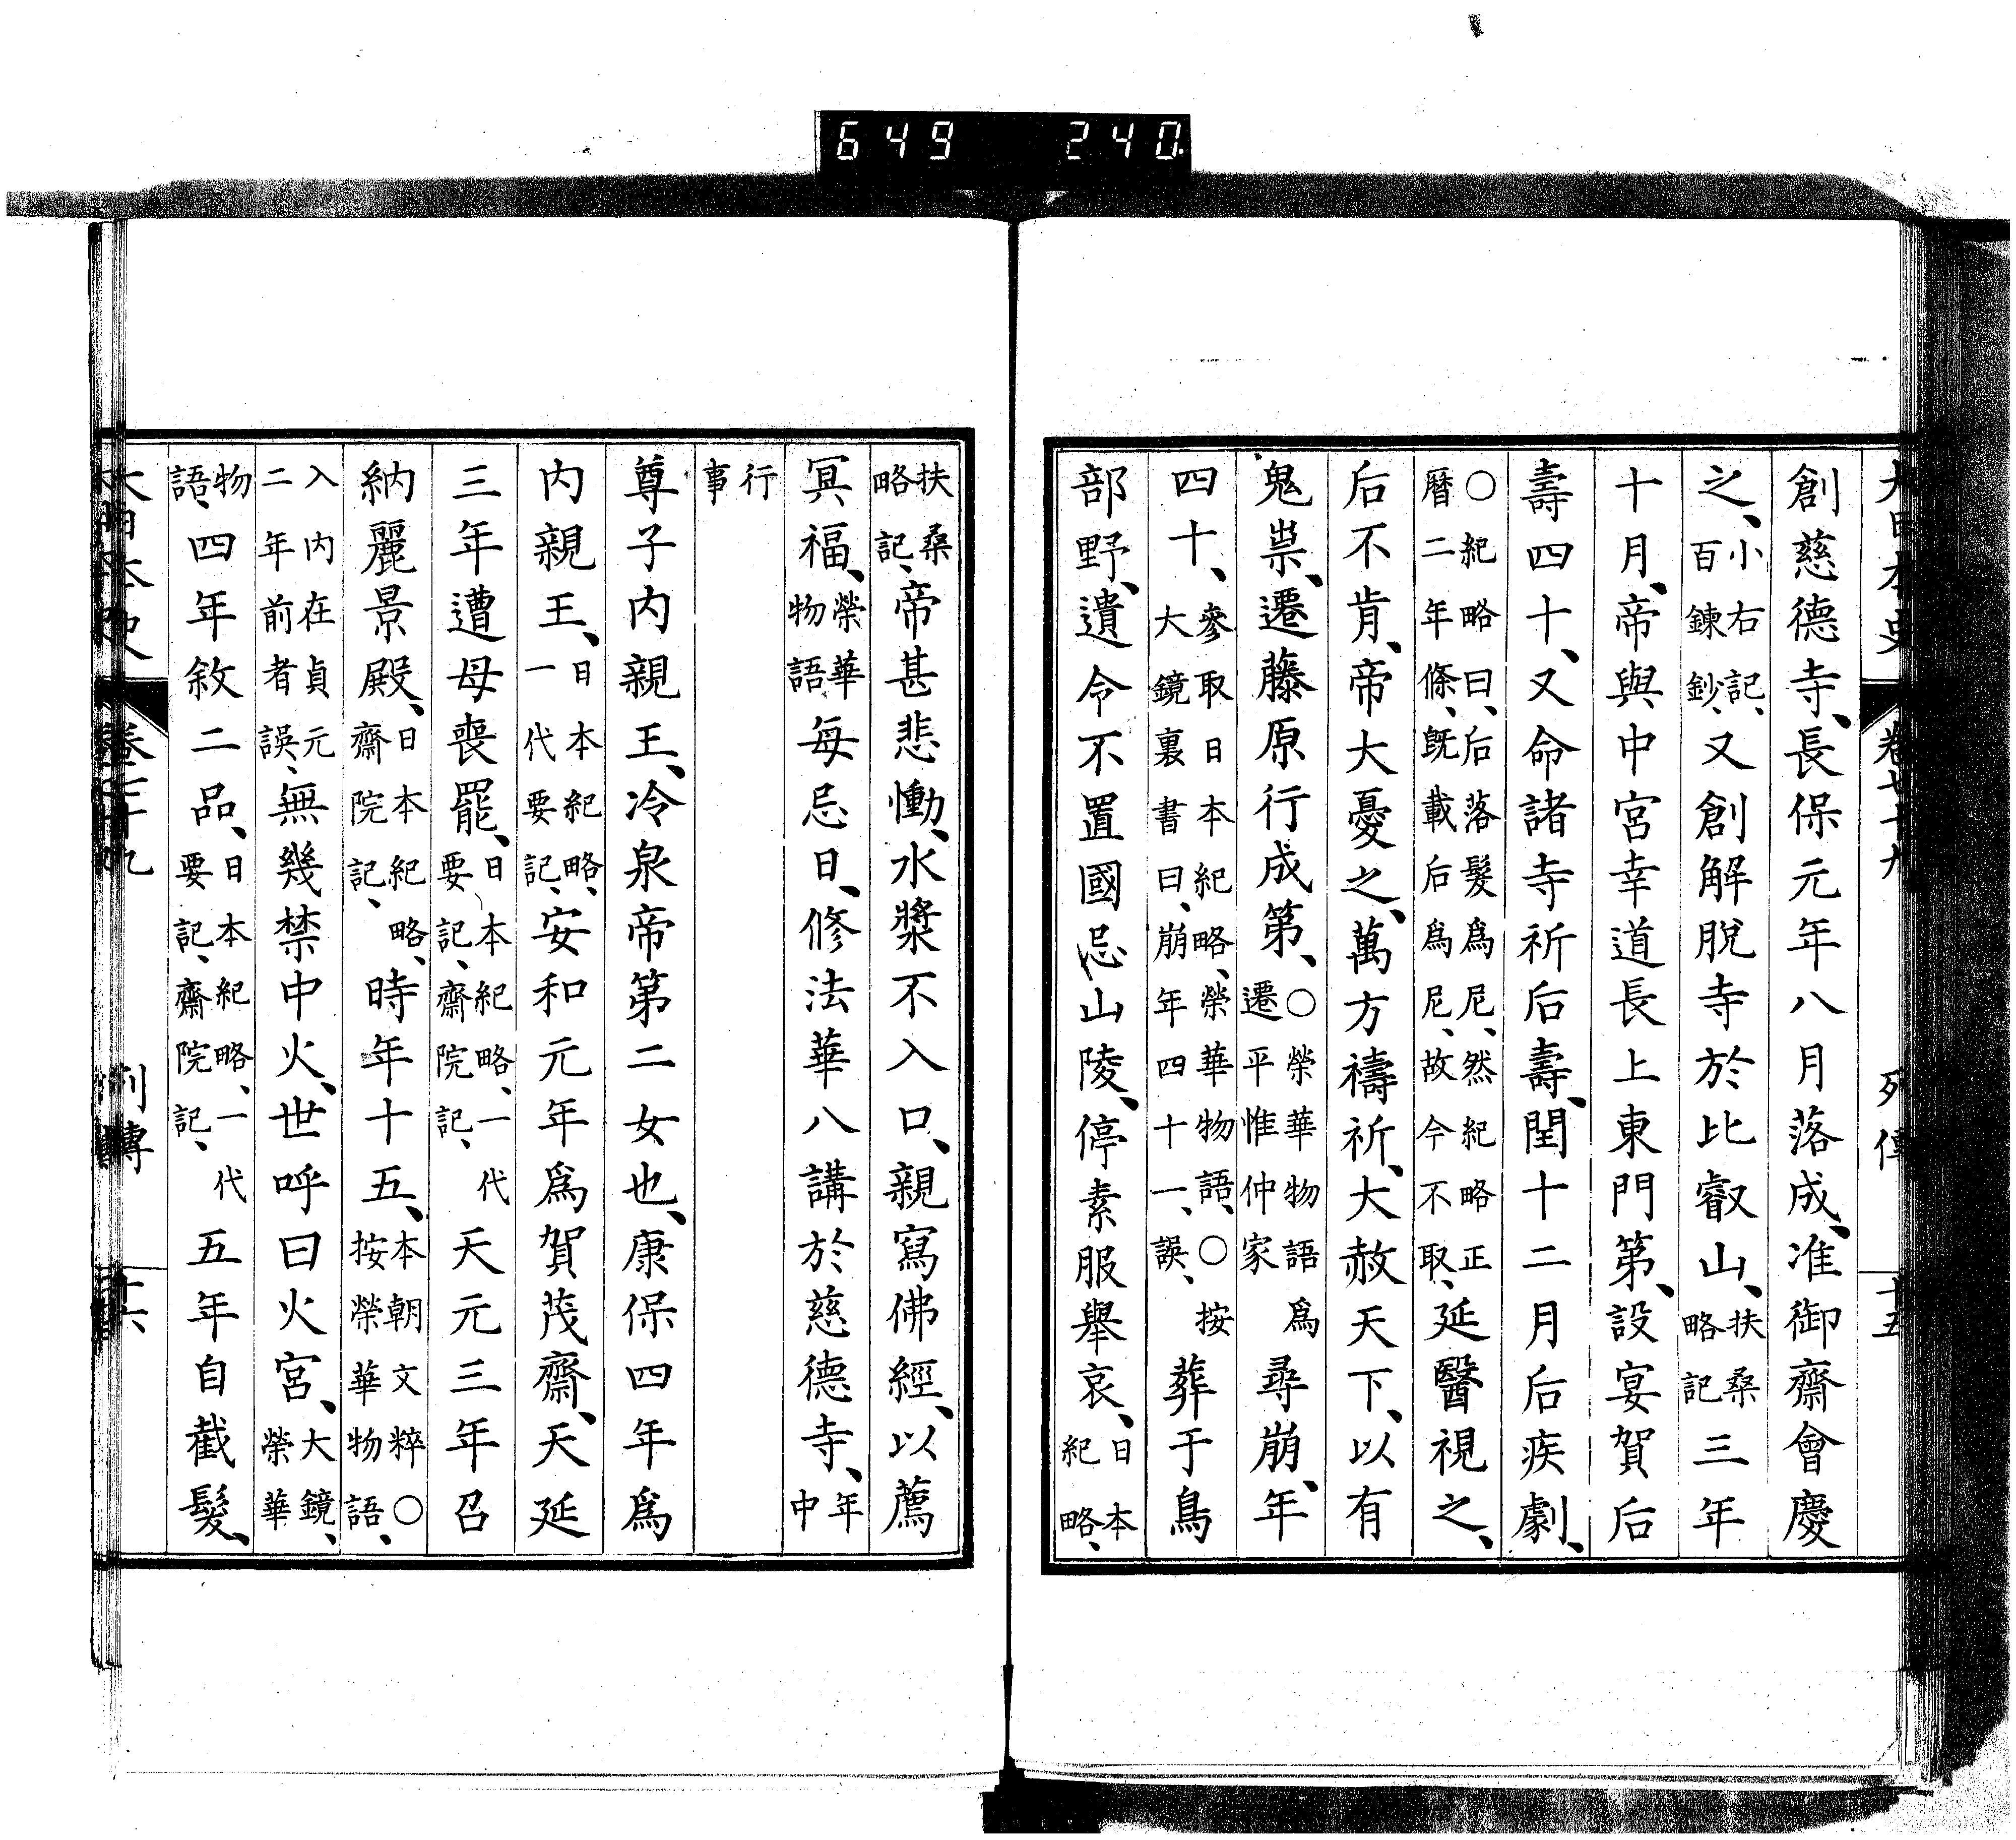 649 240
大日本史 卷七十九 列傳 十五
創慈德寺、長保元年八月落成、准御齋會慶
之、小右記、百鍊鈔、又創解脱寺於比叡山、扶桑略記三年
十月、帝與中宮幸道長上東門第、設宴賀后
壽四十、又命諸寺祈后壽、閏十二月后疾劇、
○紀略曰、后落髮爲尼、然紀略正曆二年條、既載后爲尼、故今不取、延醫視之、
后不肯、帝大憂之、萬方禱祈、大赦天下、以有
鬼祟、遷藤原行成第、○榮華物語爲遷平惟仲家尋崩、年
四十、參取日本紀略、榮華物語、○按大鏡裏書曰、崩年四十一、誤、葬于鳥
部野、遺令不置國忌山陵、停素服舉哀、日本紀略、
扶桑略記、帝甚悲慟、水漿不入口、親寫佛經、以薦
冥福、榮華物語每忌日、修法華八講於慈德寺、年中
行事
尊子内親王、冷泉帝第二女也、康保四年爲
内親王、日本紀略、一代要記、安和元年爲賀茂齋、天延
三年遭母喪罷、日本紀略、一代要記、齋院記、天元三年召
納麗景殿、日本紀略、齋院記、時年十五、本朝文粹○按榮華物語、
入内在貞元二年前者誤、無幾禁中火、世呼曰火宮、大鏡、榮華
物語、四年敘二品、日本紀略、一代要記、齋院記、五年自截髮、
大日本史 卷七十九 列傳 十六